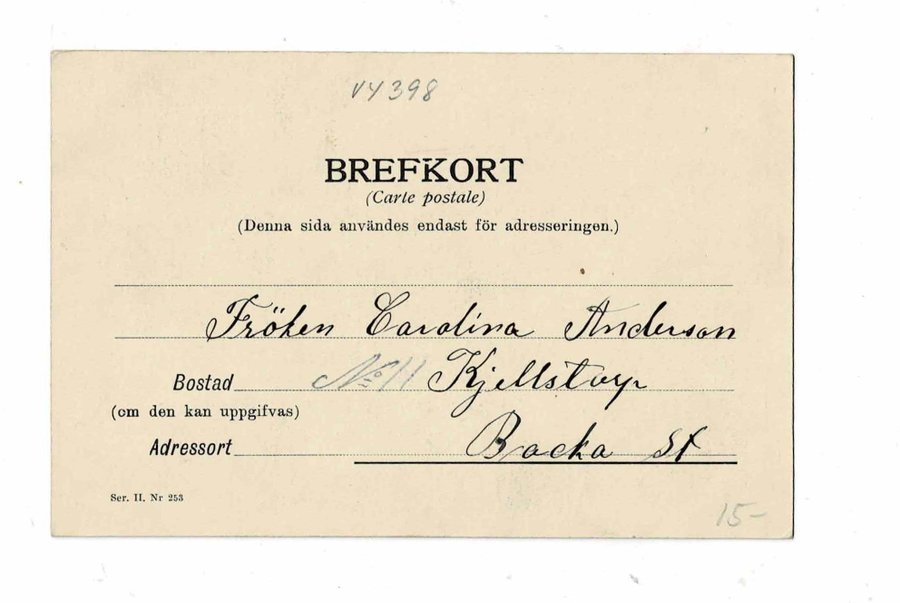 V4398
BREFKORT
(Carte postale)
(Denna sida användes endast för adresseringen.)
Fröken Carolina Anderson
Bostad No 11 Kjellstorp
(om den kan uppgifvas)
Adressort Backa St
Ser. II. Nr 253
15-